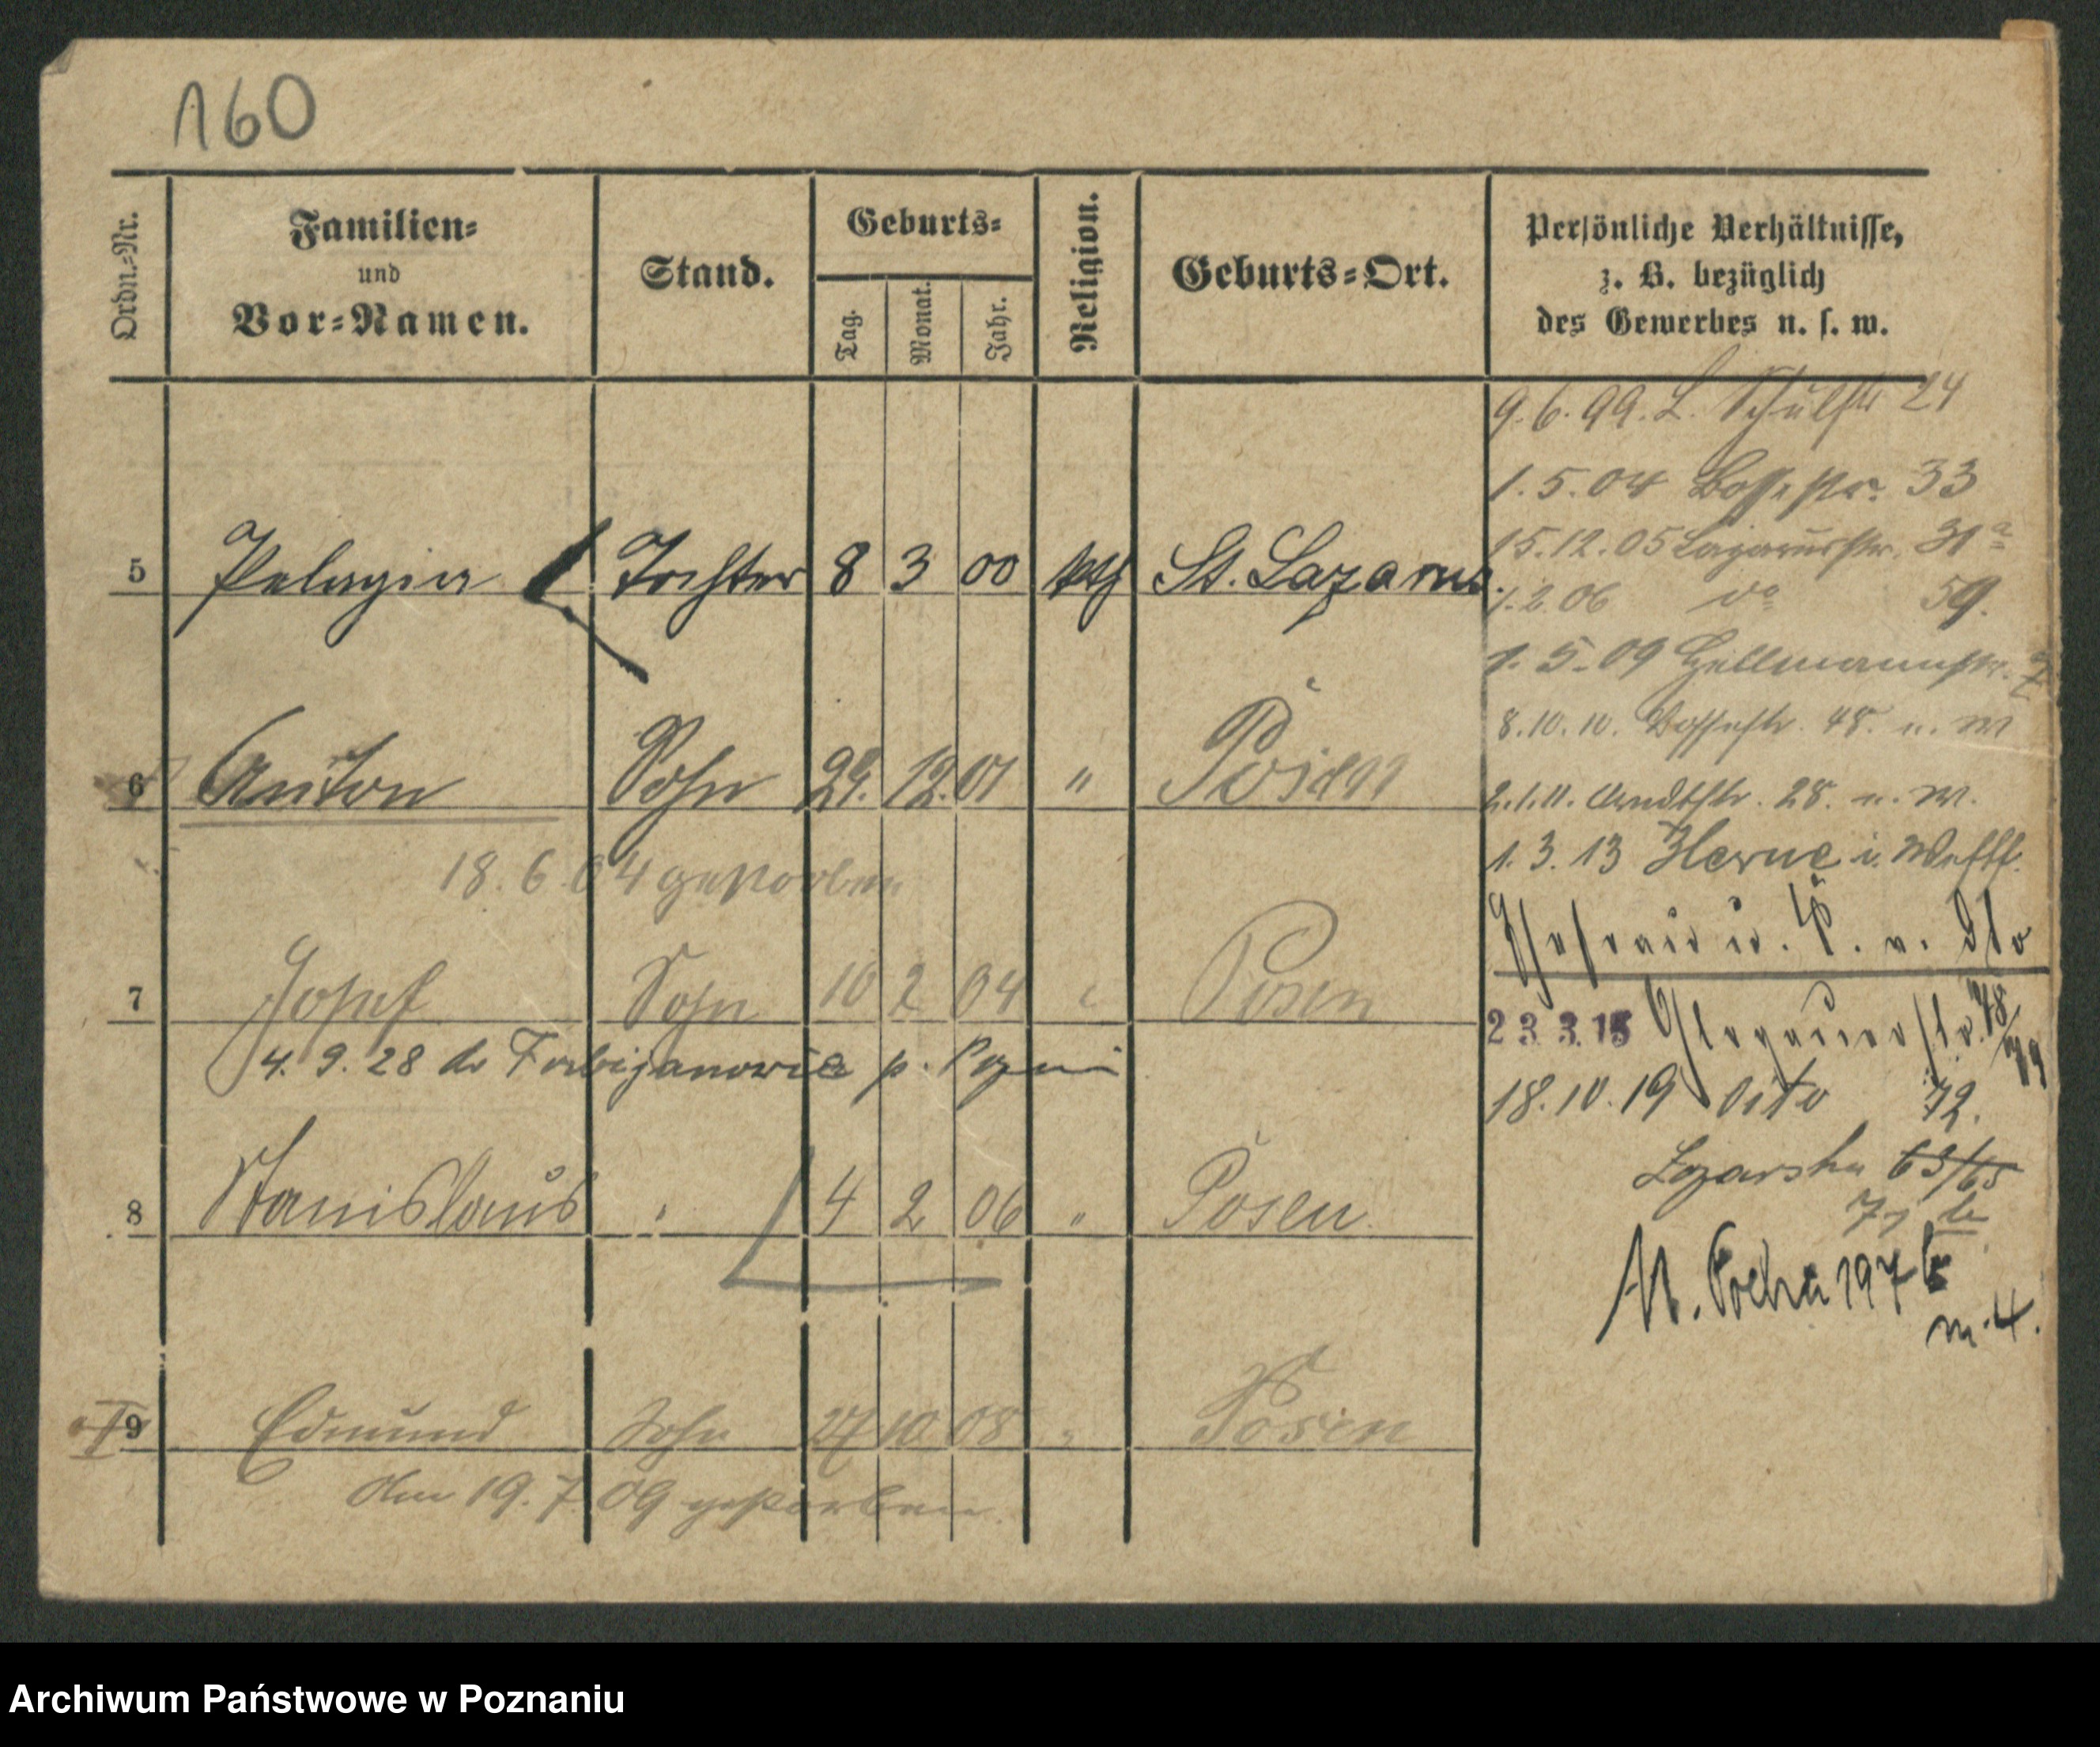 160
Ordn.-Nr.
Familien-
und
Vor-Namen.
Stand.
Geburts-
Tag.
Monat.
Jahr.
Religion.
Geburts-Ort.
Persönliche Verhältnisse,
z. B. bezüglich
des Gewerbes u. s. w.
9.6.99. L. Schulstr 24
1.5.04 Bossestr. 33
15.12.05 Lazarusstr. 31a
5 Pelagia Tochter 8 3 00 kth St. Lazarus
1.2.06 do 59.
1.5.09 Hellmannstr.
8.10.10. Bossestr. 48. u. M
6 Anton Sohn 29. 12. 01 " Posen
2.1.11. Arndtstr. 28. u. M.
1.3.13 Herne i. Westf.
18.6.04 gestorben
Ehefrau u. K. v. dto
7 Josef Sohn 10 2 04 " Posen
23 3.15 Glogauerstr.
4.9.28 do p.
18.10.19 dito 72.
Lazarska 63/65
8 Stanislaus " 4 2 06 " Posen
M. Focha 197
m. 4.
9 Edmund Sohn 27 10 08 " Posen
Am 19.7.09 gestorben.
Archiwum Państwowe w Poznaniu